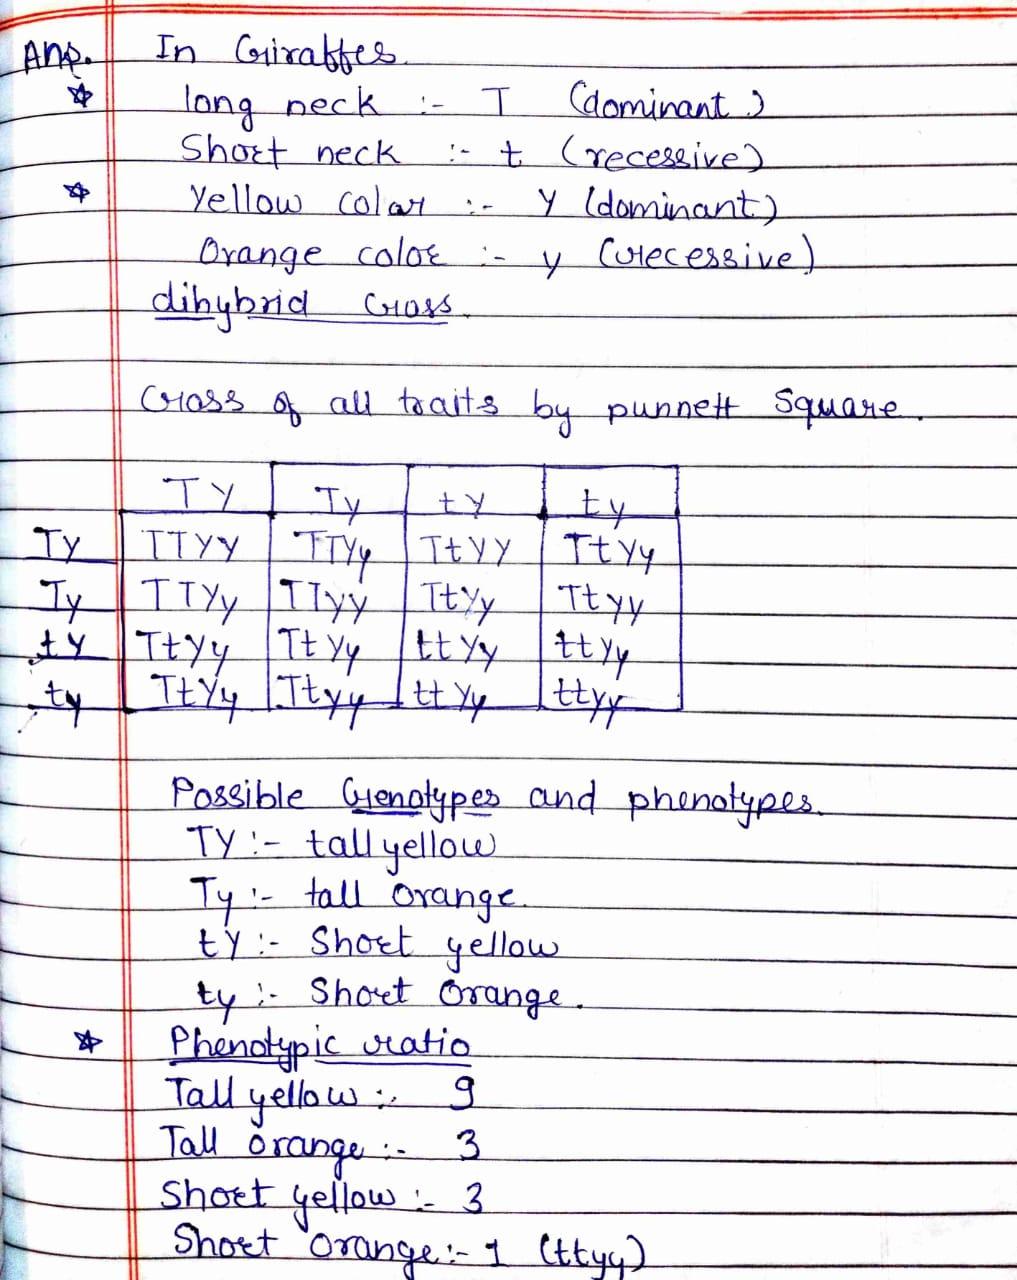 Ans. In Giraffes.
☆ long neck :- T (dominant)
Short neck :- t (recessive)
☆ Yellow color :- Y (dominant)
Orange color :- y (recessive)
dihybrid cross.
Cross of all traits by punnett square.
TY Ty tY ty
Ty TTYY TTYy TtYY TtYy
Ty TTYy TTyy TtYy Ttyy
tY TtYy TtYy ttYy ttyy
ty TtYy Ttyy ttYy ttyy
Possible Genotypes and phenotypes.
TY :- tall yellow
Ty :- tall orange.
tY :- Short yellow
ty :- Short Orange.
☆ Phenotypic ratio
Tall yellow :- 9
Tall orange :- 3
Short yellow :- 3
Short orange :- 1 (ttyy)